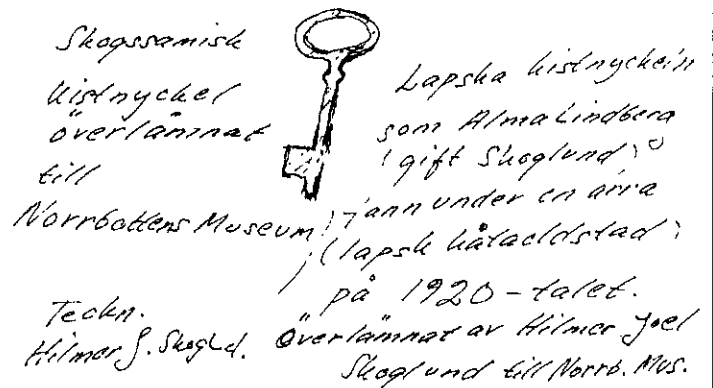 Skogssamisk
kistnyckel
överlämnat
till
Norrbottens Museum
Teckn.
Hilmer J. Skogld.
Lapska kistnyckeln
som Alma Lindberg
(gift Skoglund)
fann under en árra
(lapsk kåtaeldstad)
på 1920-talet.
Överlämnat av Hilmer Joel
Skoglund till Norrb. Mus.